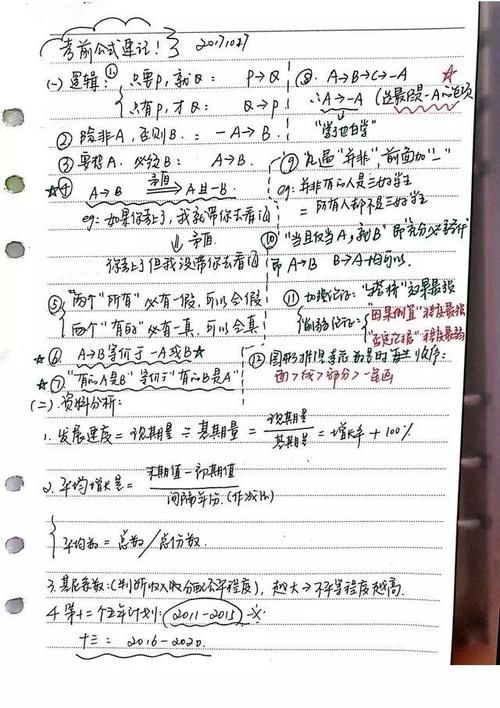 考前公式速记! 2017.10.27
(一) 逻辑: ① 只要P,就Q: P→Q
只有P,才Q: Q→P
② 除非A,否则B: -A→B.
③ 要想A.必须B: A→B.
☆④ A→B 矛盾 A且-B.
eg: 如果你考上了,我就带你去看海
⇓矛盾
你考上了但我没带你去看海
⑤ 两个"所有"必有一假,可以全假
两个"有的"必有一真,可以全真
☆⑥ A→B等价于-A或B☆
☆⑦ "有的A是B"等价于"有的B是A"
⑧ A→B→C→-A ☆
∴A→-A
⑨ 凡遇"并非",前面加"-"
eg: 并非有的人是三好学生
= 所有人都不是三好学生
⑩ "当且仅当A,就B"即"充分必要条件"
即 A→B B→A均可以.
⑪ 加强论证: "搭桥"效果最强
削弱论证: "因果倒置"程度最强
"否定论据"程度最弱
面>线>部分>一笔画
(二).资料分析:
1.发展速度 = 现期量 ÷ 基期量 = 现期量/基期量 = 增长率 + 100%
2.平均增长量 = 末期值-初期值/间隔年份.(作减法)
平均数 = 总数/总份数.
3.基尼系数:(判断收入收分配不平程度),越大→不平等程度越高.
4.第十二个五年计划: 2011-2015
十三: 2016-2020.